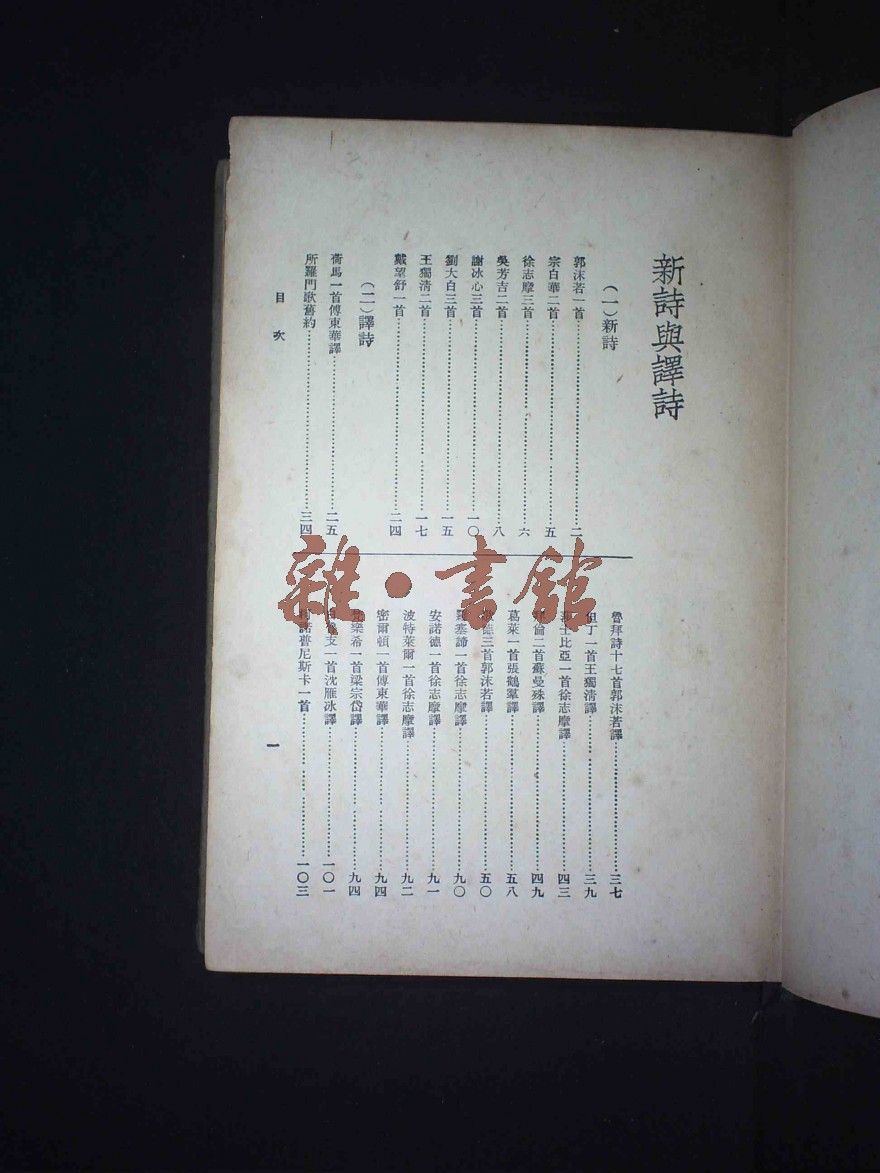 新詩與譯詩
（一）新詩
郭沫若一首……二
宗白華二首……五
徐志摩三首……六
吳芳吉二首……八
謝冰心三首……一〇
劉大白三首……一五
王獨清二首……一七
戴望舒一首……二四
（二）譯詩
荷馬一首傅東華譯……二五
所羅門歌舊約……三四
魯拜詩十七首郭沫若譯……三七
但丁一首王獨清譯……三九
士比亞一首徐志摩譯……四三
倫二首蘇曼殊譯……四九
葛萊一首張鶴羣譯……五八
德三首郭沫若譯……五〇
羅塞諦一首徐志摩譯……九〇
安諾德一首徐志摩譯……九一
波特萊爾一首徐志摩譯……九二
密爾頓一首傅東華譯……九四
樂希一首梁宗岱譯……九四
支一首沈雁冰譯……一〇一
諾普尼斯卡一首……一〇三
目次
一
雜·書館